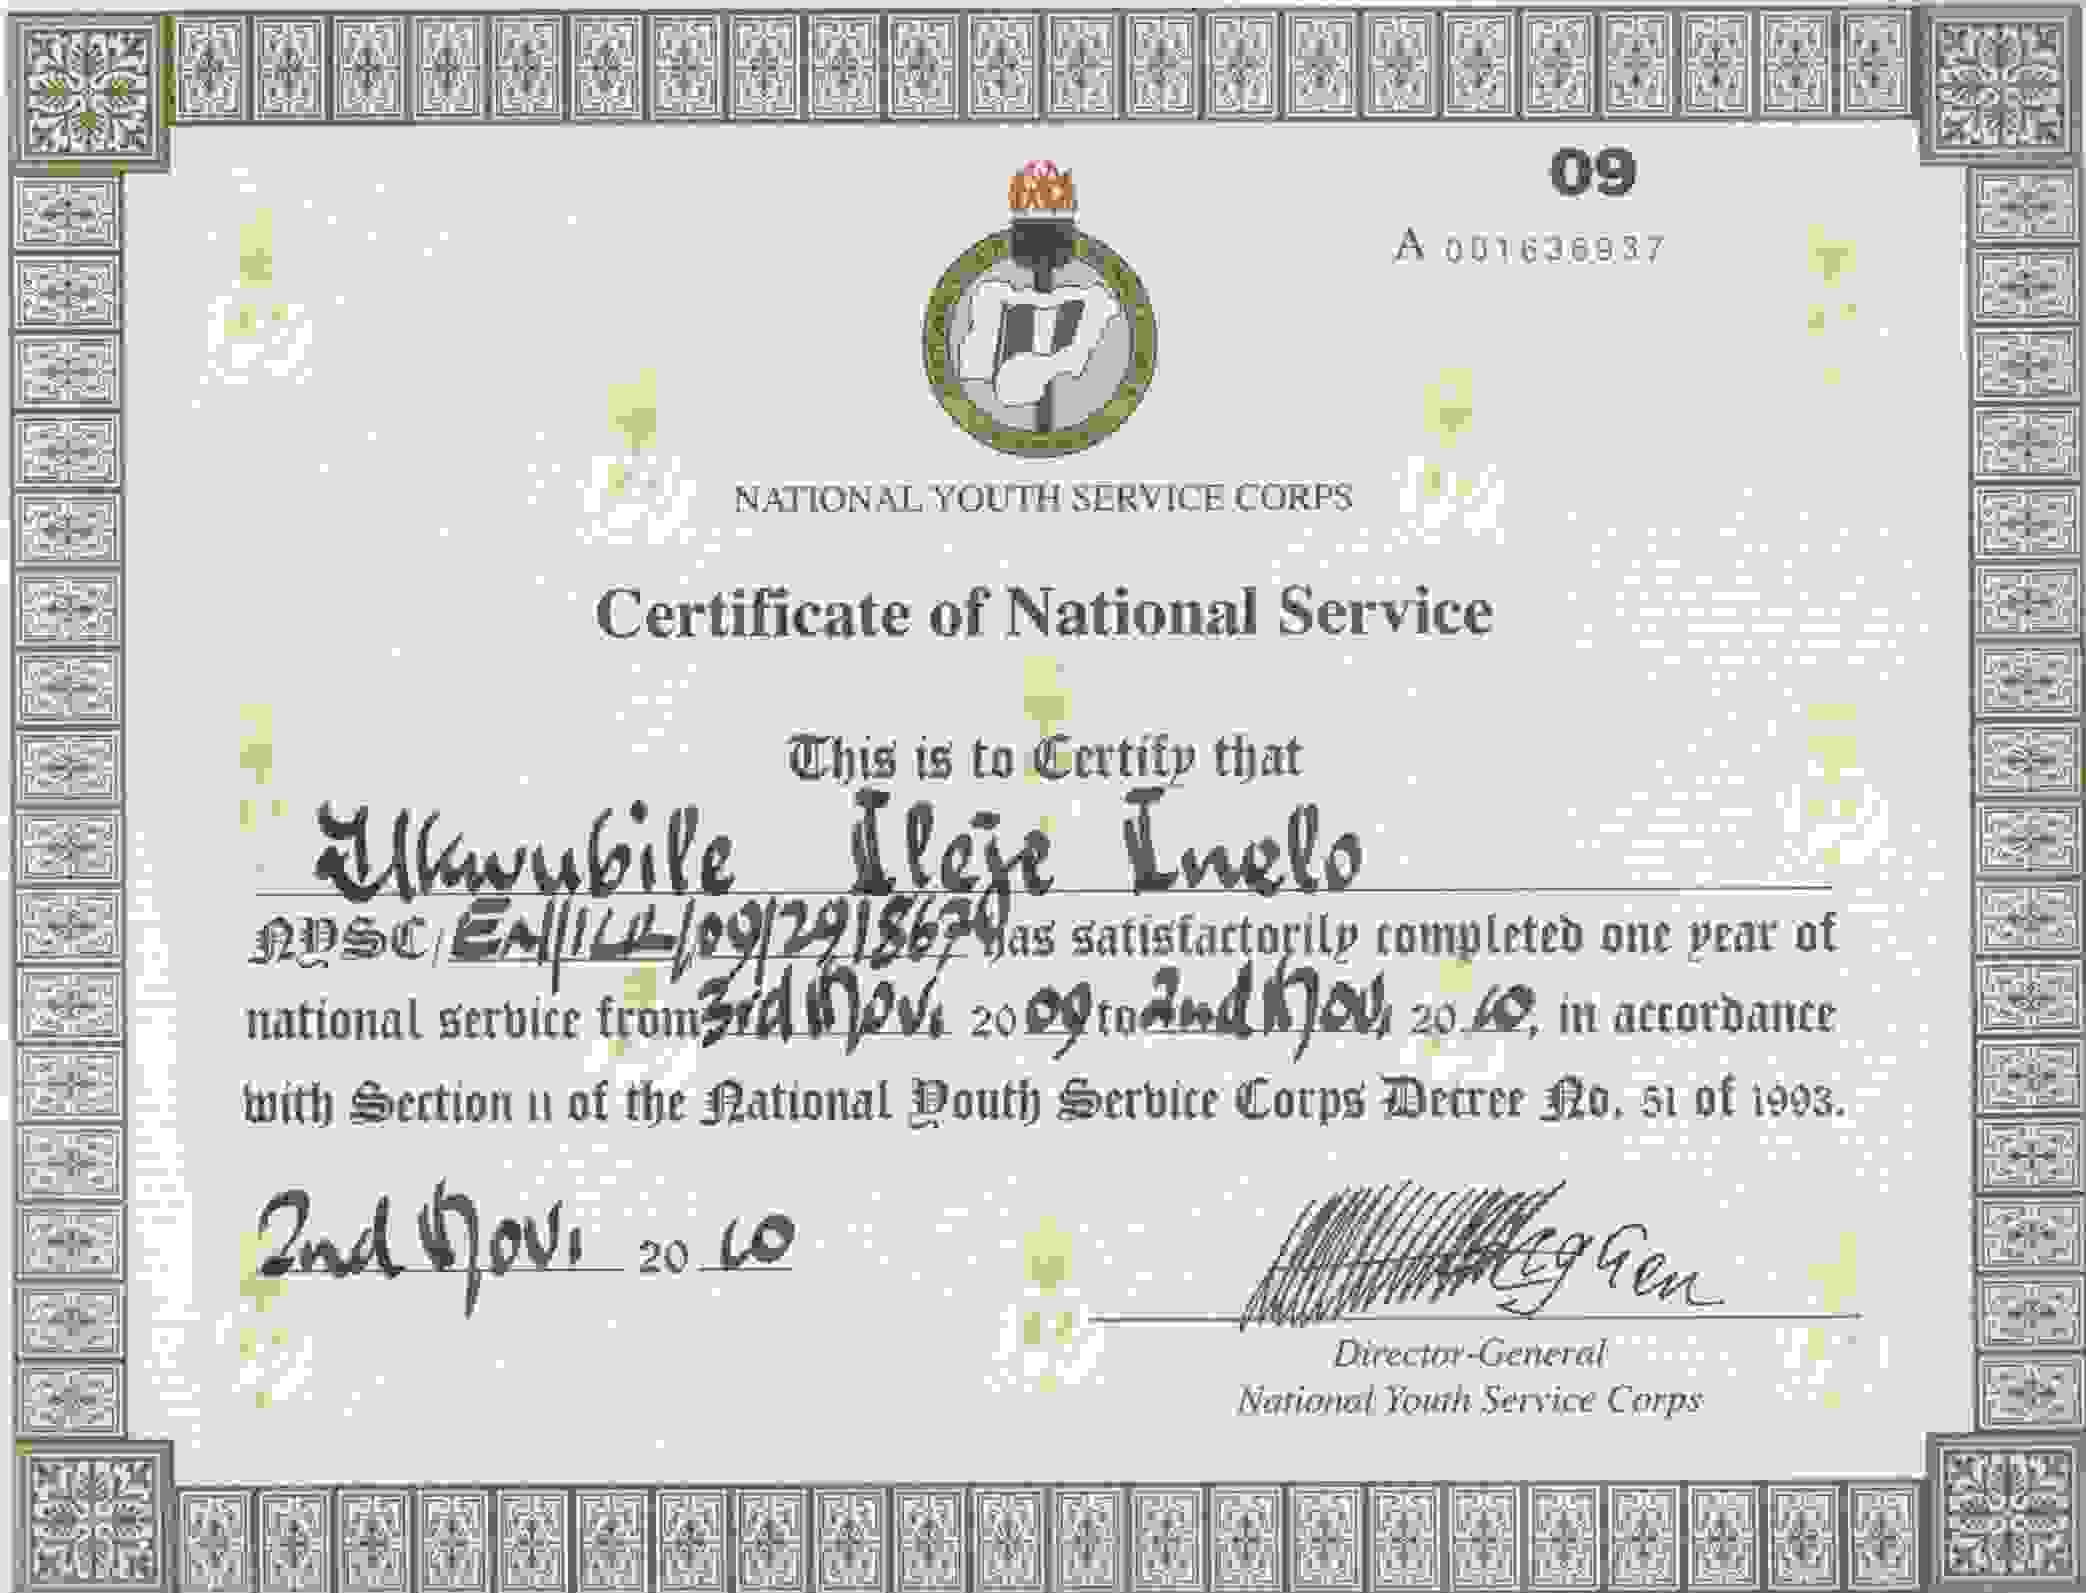 09
A 001636937
NATIONAL YOUTH SERVICE CORPS
Certificate of National Service
This is to Certify that
Ukwubile Ileje Inelo
NYSC/ has satisfactorily completed one year of
national service from 3rd Nov. 2009 to 2nd Nov. 2010, in accordance
with Section 11 of the National Youth Service Corps Decree No. 51 of 1993.
2nd Nov. 2010
Director-General
National Youth Service Corps